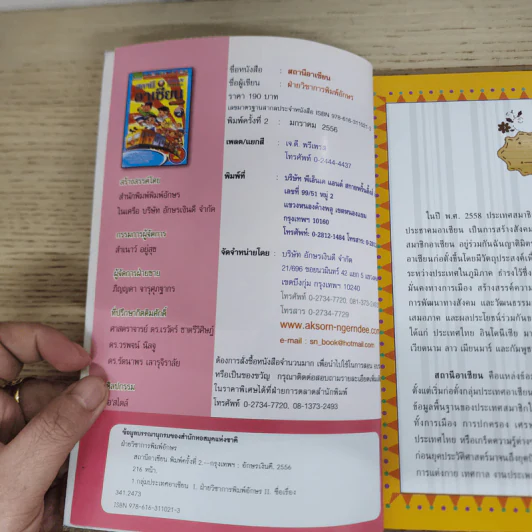 อาเซียน
สร้างสรรค์โดย
สำนักพิมพ์พิมพ์อักษร
ในเครือ บริษัท อักษรเงินดี จำกัด
กรรมการผู้จัดการ
สำเนาว์ อยู่สุข
ผู้จัดการฝ่ายขาย
ภิญญดา จากุศฎฐากร
ที่ปรึกษากิตติมศักดิ์
ศาสตราจารย์ ดร.เรวัตร์ ชาตรีวิศิษฏ์
ดร.วรพจน์ นิลจู
ดร.รัตนาพร เลารุจิราลัย
ศิลปกรรม
ชื่อหนังสือ : สถานีอาเซียน
ชื่อผู้เขียน : ฝ่ายวิชาการพิมพ์อักษร
ราคา 190 บาท
เลขมาตรฐานสากลประจำหนังสือ ISBN 978-616-311021-3
พิมพ์ครั้งที่ 2 : มกราคม 2556
เพลต/แยกสี : เจ.ดี. พรีเพรส
โทรศัพท์ 0-2444-4437
พิมพ์ที่ : บริษัท พีเอ็นเค แอนด์ สกายพริ้นติ้งส์
เลขที่ 99/51 หมู่ 2
แขวงหนองค้างพลู เขตหนองแขม
กรุงเทพฯ 10160
โทรศัพท์: 0-2812-1484 โทรสาร:
จัดจำหน่ายโดย : บริษัท อักษรเงินดี จำกัด
21/696 ซอยนวมินทร์ 42 แยก 5
เขตบึงกุ่ม กรุงเทพฯ 10240
โทรศัพท์ 0-2734-7720, 081-373-
โทรสาร 0-2734-7729
www.aksorn-ngerndee.com
e-mail : sn_book@hotmail.com
ต้องการสั่งซื้อหนังสือจำนวนมาก เพื่อนำไปใช้ในการสอน
หรือเป็นของขวัญ กรุณาติดต่อสอบถามรายละเอียดเพิ่มเติม
ในราคาพิเศษได้ที่ฝ่ายการตลาดสำนักพิมพ์
โทรศัพท์ 0-2734-7720, 08-1373-2493
ข้อมูลบรรณานุกรมของสำนักหอสมุดแห่งชาติ
ฝ่ายวิชาการพิมพ์อักษร
สถานีอาเซียน พิมพ์ครั้งที่ 2.--กรุงเทพฯ : อักษรเงินดี, 2556
216 หน้า.
1.กลุ่มประเทศอาเซียน I. ฝ่ายวิชาการพิมพ์อักษร II. ชื่อเรื่อง
341.2473
ISBN 978-616-311021-3
ในปี พ.ศ. 2558 ประเทศสมาชิ
ประชาคมอาเซียน เป็นการสร้างสังคม
สมาชิกอาเซียน อยู่ร่วมกันฉันญาติมิต
อาเซียนก่อตั้งขึ้นโดยมีวัตถุประสงค์เพื่
ระหว่างประเทศในภูมิภาค ธำรงไว้ซึ่ง
มั่นคงทางการเมือง สร้างสรรค์ความ
การพัฒนาทางสังคม และวัฒนธรรม
เสมอภาค และผลประโยชน์ร่วมกันข
ได้แก่ ประเทศไทย อินโดนีเซีย มา
เวียดนาม ลาว เมียนมาร์ และกัมพูช
สถานีอาเซียน คือแหล่งข้อ
ตั้งแต่เริ่มก่อตั้งกลุ่มประเทศอาเซีย
ข้อมูลพื้นฐานของประเทศสมาชิก
ทั้งการเมือง การปกครอง เศร
ประเทศไทย หรือเกร็ดความรู้ต่าง
ก่อนยุคประวัติศาสตร์มาจนถึงยุคปั
การแต่งกาย เทศกาล งานประเพ